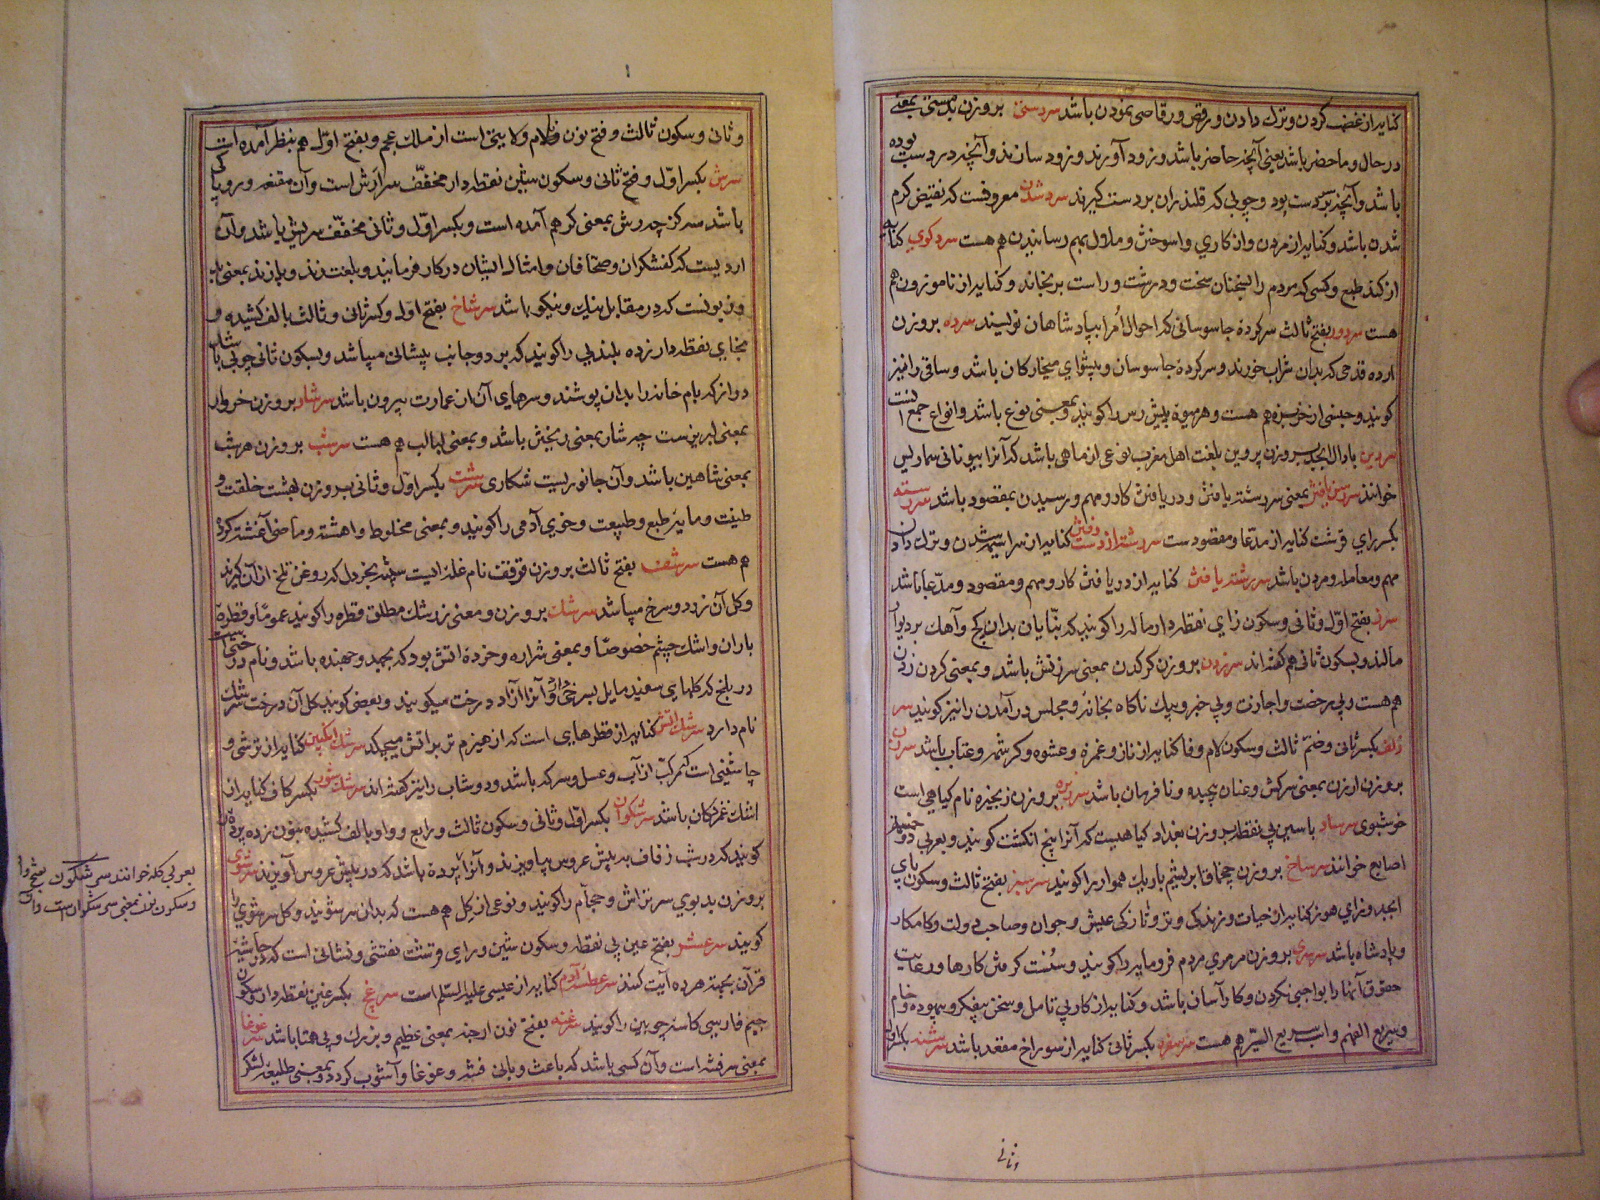 کنایه از غضب کردن و ترک دادن و رقص و رقاصی نمودن باشد سردستی بر وزن بدمستی بمعنی
در حال و ماحضر باشد یعنی آنچه حاضر باشد و زود آورند و زود رسانند و آنچه در دست بوده
باشد و آنچه بدست بود و چوبی که قلندران بر دست گیرند سرد شدن معروفست که نقیض گرم
شدن باشد و کنایه از مردن و از کاری واسوختن و ملول بهم رسانیدن هم هست سردگوی کنایه
از کند طبع و کسی که مردم را بسخنان سخت و درشت و راست برنجاند و کنایه از ناموزون هم
هست سردور بفتح ثالث سرکرده جاسوسانی که احوال امرا بپادشاهان نویسند سرده بر وزن
ارده قدحی که بدان شراب خورند و سرکرده جاسوسان و پیشوای میخارگان باشد و ساقی را نیز
گویند و جنسی از خربزه هم هست و هر میوه پیش رس را گویند و بمعنی نوع باشد و انواع جمع آنست
سردین با دال ابجد بر وزن پروین بلغت اهل مغرب نوعی از ماهی باشد که آنرا بیونانی سماریس
خوانند سررسن یافتن بمعنی سررشته یافتن و دریافتن کار و مهم و رسیدن بمقصود باشد سررشته
بکسر رای قرشت کنایه از مدعا و مقصودست سررشته از دست رفتن کنایه از سراسیمه شدن و ترک دادن
مهم و معامله و مردن باشد سررشته یافتن کنایه از دریافتن کار و مهم و مقصود و مدعا باشد
سرز بفتح اول و ثانی و سکون زای نقطه دار ماله را گویند که بنایان بدان گچ و آهک بر دیوار
مالند و بسکون ثانی هم گفته اند سرزدن بر وزن کرکدن بمعنی سرزنش باشد و بمعنی گردن زدن
هم هست و بی رخصت و اجازت و بی خبر و بیک ناگاه بخانه و مجلس در آمدن را نیز گویند سر
زلف بکسر ثانی و ضم ثالث و سکون لام و فا کنایه از ناز و غمزه و عشوه و کرشمه و عتاب باشد سرزن
بر وزن ارزن بمعنی سرکش و عنان پیچیده و نافرمان باشد سرزیره بر وزن زنجیره نام گیاهی است
خوشبوی سرساد با سین بی نقطه بر وزن بغداد گیاهیست که آنرا پنج انگشت گویند و بعربی ذو خمسة
اصابع خوانند سرساخ بر وزن چخماق ابریشم باریک هموار را گویند سرسبز بفتح ثالث و سکون بای
ابجد و زای هوز کنایه از حیات و زندگی و تر و تازگی عیش و جوان و صاحب دولت و کامکار
و پادشاه باشد سرسری بر وزن مرمری مردم فرومایه را گویند و سست گرفتن کارها و رعایت
حقوق آنها را بواجبی نکردن و کار آسان باشد و کنایه از کار بی تامل و سخن بیفکر و بیهوده و خام
و سریع الفهم و اسب سریع السیر هم هست بکسر ثانی کنایه از سوراخ مقعد باشد سرشند بکسر اول
وثانی
و ثانی و سکون ثالث و فتح نون ولام ولایتی است از ملک عجم و بفتح اول هم بنظر آمده است
سرش بکسر اول و فتح ثانی و سکون شین نقطه دار مخفف سرارش است و آن مقنعه و روپاکی
باشد سر گز چه رش بمعنی گز هم آمده است و بکسر اول و ثانی مخفف سریش باشد و آن
آردیست که کفشگران و صحافان و امثال ایشان در کار فرمایند و بلغت زند و پازند بمعنی بد
و زبونست که در مقابل نیک و نیکو باشد سرشاخ بفتح اول و کسر ثانی و ثالث بالف کشیده و
بخای نقطه دار زده بلندیی را گویند که بر دو جانب پیشانی میباشد و بسکون ثانی چوبی باشد
دراز که بام خانه را بدان پوشند و سرهای آن از عمارت بیرون باشد سرشار بر وزن خروار
بمعنی لبریزست چه شار بمعنی ریختن باشد و بمعنی لبالب هم هست سرشب بر وزن هرشب
بمعنی شاهین باشد و آن جانوریست شکاری سرشت بکسر اول و ثانی بر وزن بهشت خلقت و
طینت و مایه طبع و طبیعت و خوی آدمی را گویند و بمعنی مخلوط و اهشته و ماضی آغشتن کرده
هم هست سرشف بفتح ثالث بر وزن قرقف نام غله ایست شبیه بخردل که روغن تلخ از آن گیرند
و گل آن زرد و سرخ میباشد سرشک بر وزن و معنی زرشک مطلق قطره را گویند عموما و قطره
باران و اشک چشم خصوصا و بمعنی شراره و خرده اتش بود که بجهد و جهنده باشد و نام درختی
در بلخ که گلهای سفید مایل بسرخی دارد و آنرا آزاد درخت میگویند و بعضی گویند گل آن درخت سرشک
نام دارد سرشک آتش کنایه از قطرهایی است که از هیزم تر بر اتش میچکد سرشک انگبین کنایه از ترشی و
چاشنی است که مرکب از آب و عسل و سرکه باشد و دوشاب را نیز گفته اند سرشک شور بکسر کاف کنایه از
اشک غمزدگان باشد سرشکوان بکسر اول و ثانی و سکون ثالث و رابع و واو بالف کشیده بنون زده پرده
گویند که در شب زفاف به پیش عروس بیاویزند و آنرا پرده باشد که در پیش عروس آویزند سرشوی
بر وزن بدبوی سرتراش و حجام را گویند و نوعی از گل هم هست که بدان سر شویند و گل سرشوی را
گویند سرعشر بفتح عین بی نقطه و سکون شین و رای قرشت نقشی و نشانی است که در حاشیه
قرآن بجهة هر ده آیت کنند سر عطسه آدم کنایه از عیسی علیه السلام است سرغچ بکسر غین نقطه دار و سکون
جیم فارسی کاسه چوبین را گویند سرغنه بفتح نون ارجند بمعنی عظیم و بزرگ و بی همتا باشد سرغوغا
بمعنی سر فتنه است و آن کسی باشد که باعث و بانی فتنه و غوغا و آشوب گردد و بمعنی طلیعه لشکر
بعربی کله خوانند سرشکون بفتح
و سکون نون بمعنی سرشکوان است